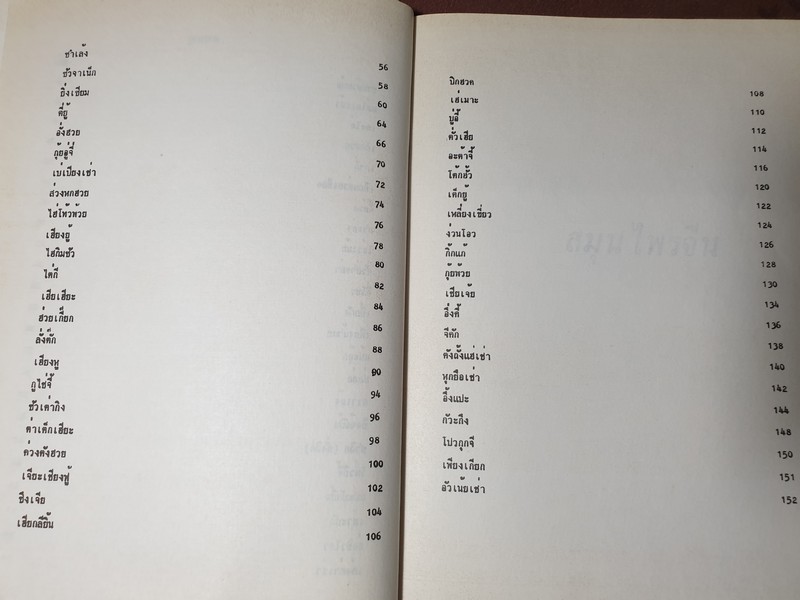 ชำเล้ง 56
ชัวจาเน็ก 58
ยิ่งเซียม 60
ตี่ยู้ 64
อั่งฮวย 66
กุ้ยอู่จี่ 70
เบ่เบียงเช่า 72
ส่วงพกฮวย 74
ไฮ่โท้วพ้วย 76
เฮียงยู้ 78
ไฮกิมซัว 80
ไต่กี่ 82
เฮียเฮียะ 84
ฮ่วยเกี๊ยก 86
ลั่งต๊ก 88
เฮียงหู 90
กูไช่จี้ 94
ชัวเค่ากิง 96
ค่าเด็กเฮียะ 98
ค่วงคังฮวย 100
เจียะเซียงพู้ 102
ชึงเจีย 104
เฮียกลียิ้น 106
ปิกฮวด 108
เฮ่เมาะ 110
บู่อี้ 112
คั่วเฮีย 114
ฉะค้าจี้ 116
โค้กฮั้ว 120
เด็กยู้ 122
เหลี่ยงเขี่ยว 124
ง่วนโฮว 126
กิ๊กแก้ 128
กุ้ยพ้วย 130
เซียเจ้ย 134
อึ่งคี้ 136
จีคัก 138
คังฉั้งแฮ่เช่า 140
หุกยือเช่า 142
อึ้งแปะ 144
กัวะกึง 148
โปวกุกจี 150
เพียงเกียก 151
อัวเน้ยเช่า 152